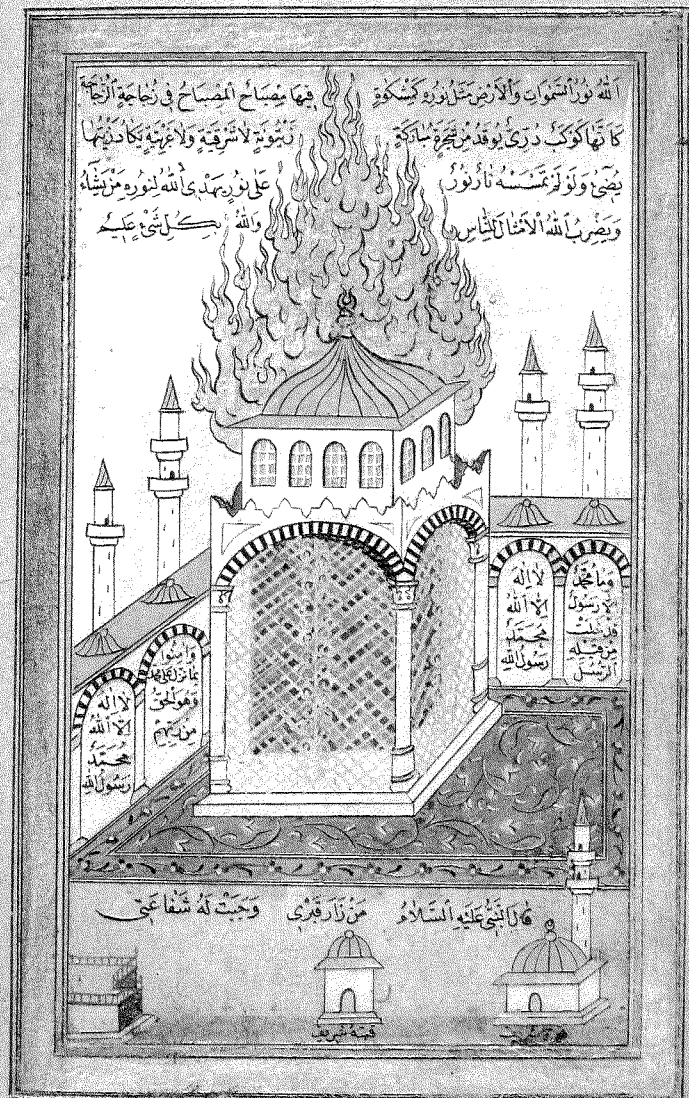 اَللّٰهُ نُورُ السَّمٰوَاتِ وَالْاَرْضِ مَثَلُ نُورِهِ كَمِشْكٰوةٍ فِيهَا مِصْبَاحٌ اَلْمِصْبَاحُ فِى زُجَاجَةٍ اَلزُّجَاجَةُ
كَاَنَّهَا كَوْكَبٌ دُرِّىٌّ يُوقَدُ مِنْ شَجَرَةٍ مُبَارَكَةٍ زَيْتُونَةٍ لَا شَرْقِيَّةٍ وَلَا غَرْبِيَّةٍ يَكَادُ زَيْتُهَا
يُضِىءُ وَلَوْ لَمْ تَمْسَسْهُ نَارٌ نُورٌ عَلٰى نُورٍ يَهْدِى اللّٰهُ لِنُورِهِ مَنْ يَشَاءُ
وَيَضْرِبُ اللّٰهُ الْاَمْثَالَ لِلنَّاسِ وَاللّٰهُ بِكُلِّ شَىْءٍ عَلِيمٌ
وَمَا مُحَمَّدٌ
اِلَّا رَسُولٌ
قَدْ خَلَتْ
مِنْ قَبْلِهِ
الرُّسُلُ
لَا اِلٰهَ
اِلَّا اللّٰهُ
مُحَمَّدٌ
رَسُولُ اللّٰهِ
وَاٰمَنُوا
بِمَا نُزِّلَ عَلٰى مُحَمَّدٍ
وَهُوَ الْحَقُّ
مِنْ رَبِّهِمْ
لَا اِلٰهَ
اِلَّا اللّٰهُ
مُحَمَّدٌ
رَسُولُ اللّٰهِ
قَالَ النَّبِىُّ عَلَيْهِ السَّلَامُ مَنْ زَارَ قَبْرِى وَجَبَتْ لَهُ شَفَاعَتِى
قبّهٔ شريف